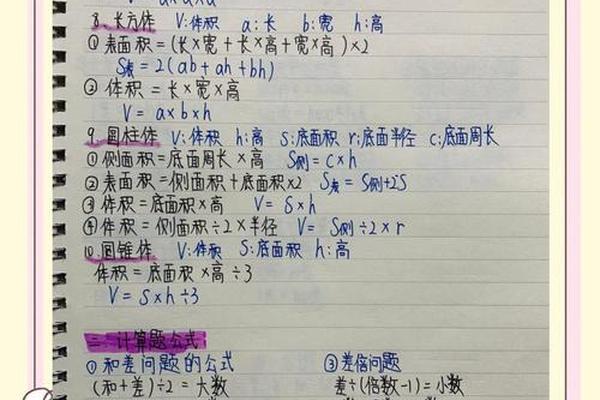 V= a×a×a
8、长方体 V:体积 a:长 b:宽 h:高
①表面积=(长×宽+长×高+宽×高)×2
S表=2(ab+ah+bh)
②体积=长×宽×高
V=a×b×h
9、圆柱体 V:体积 h:高 S:底面积 r:底面半径 C:底面周长
①侧面积=底面周长×高 S侧=c×h
②表面积=侧面积+底面积×2 S表=S侧+2S
③体积=底面积×高 V=S×h
④体积=侧面积÷2×半径 V=S侧÷2×r
10、圆锥体 V:体积 S:底面积 h:高
体积=底面积×高÷3
V=S×h÷3
二、计算题公式
①和差问题的公式 ③差倍问题
(和+差)÷2=大数 差÷(倍数-1)=小数